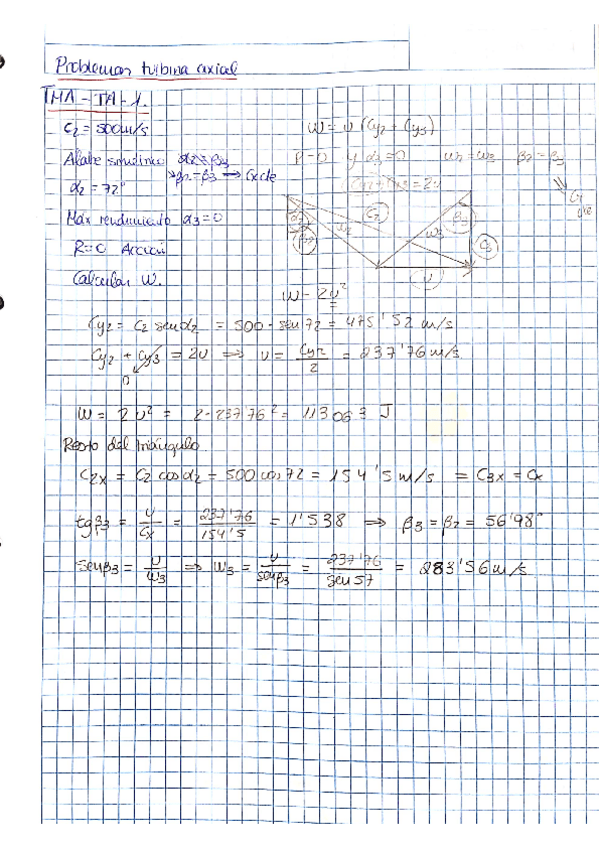 Problemas turbina axial
TMA-TA-1.
C2 = 500 m/s
W = u (Cy2 + Cy3)
Alabe simétrico
R=0 y α3=0 w2=w3 β2=β3
β2=β3 → Cx cte
α2 = 72°
= 2u
Cx cte
Máx rendimiento α3=0
R=0 Acción
Calcular W.
α2 β2 w2 C2 w3 β3 C3 u
W = 2u²
Cy2 = C2 sen α2 = 500 · sen 72 = 475'52 m/s
Cy2 + Cy3 = 2u ⇒ u = Cy2/2 = 237'76 m/s
0
W = 2u² = 2·237'76² = 113063 J
Resto del triángulo.
C2x = C2 cos α2 = 500 cos 72 = 154'5 m/s = C3x = Cx
tg β3 = u/Cx = 237'76/154'5 = 1'538 ⇒ β3 = β2 = 56'98°
sen β3 = u/w3 ⇒ w3 = u/sen β3 = 237'76/sen 57 = 283'56 m/s